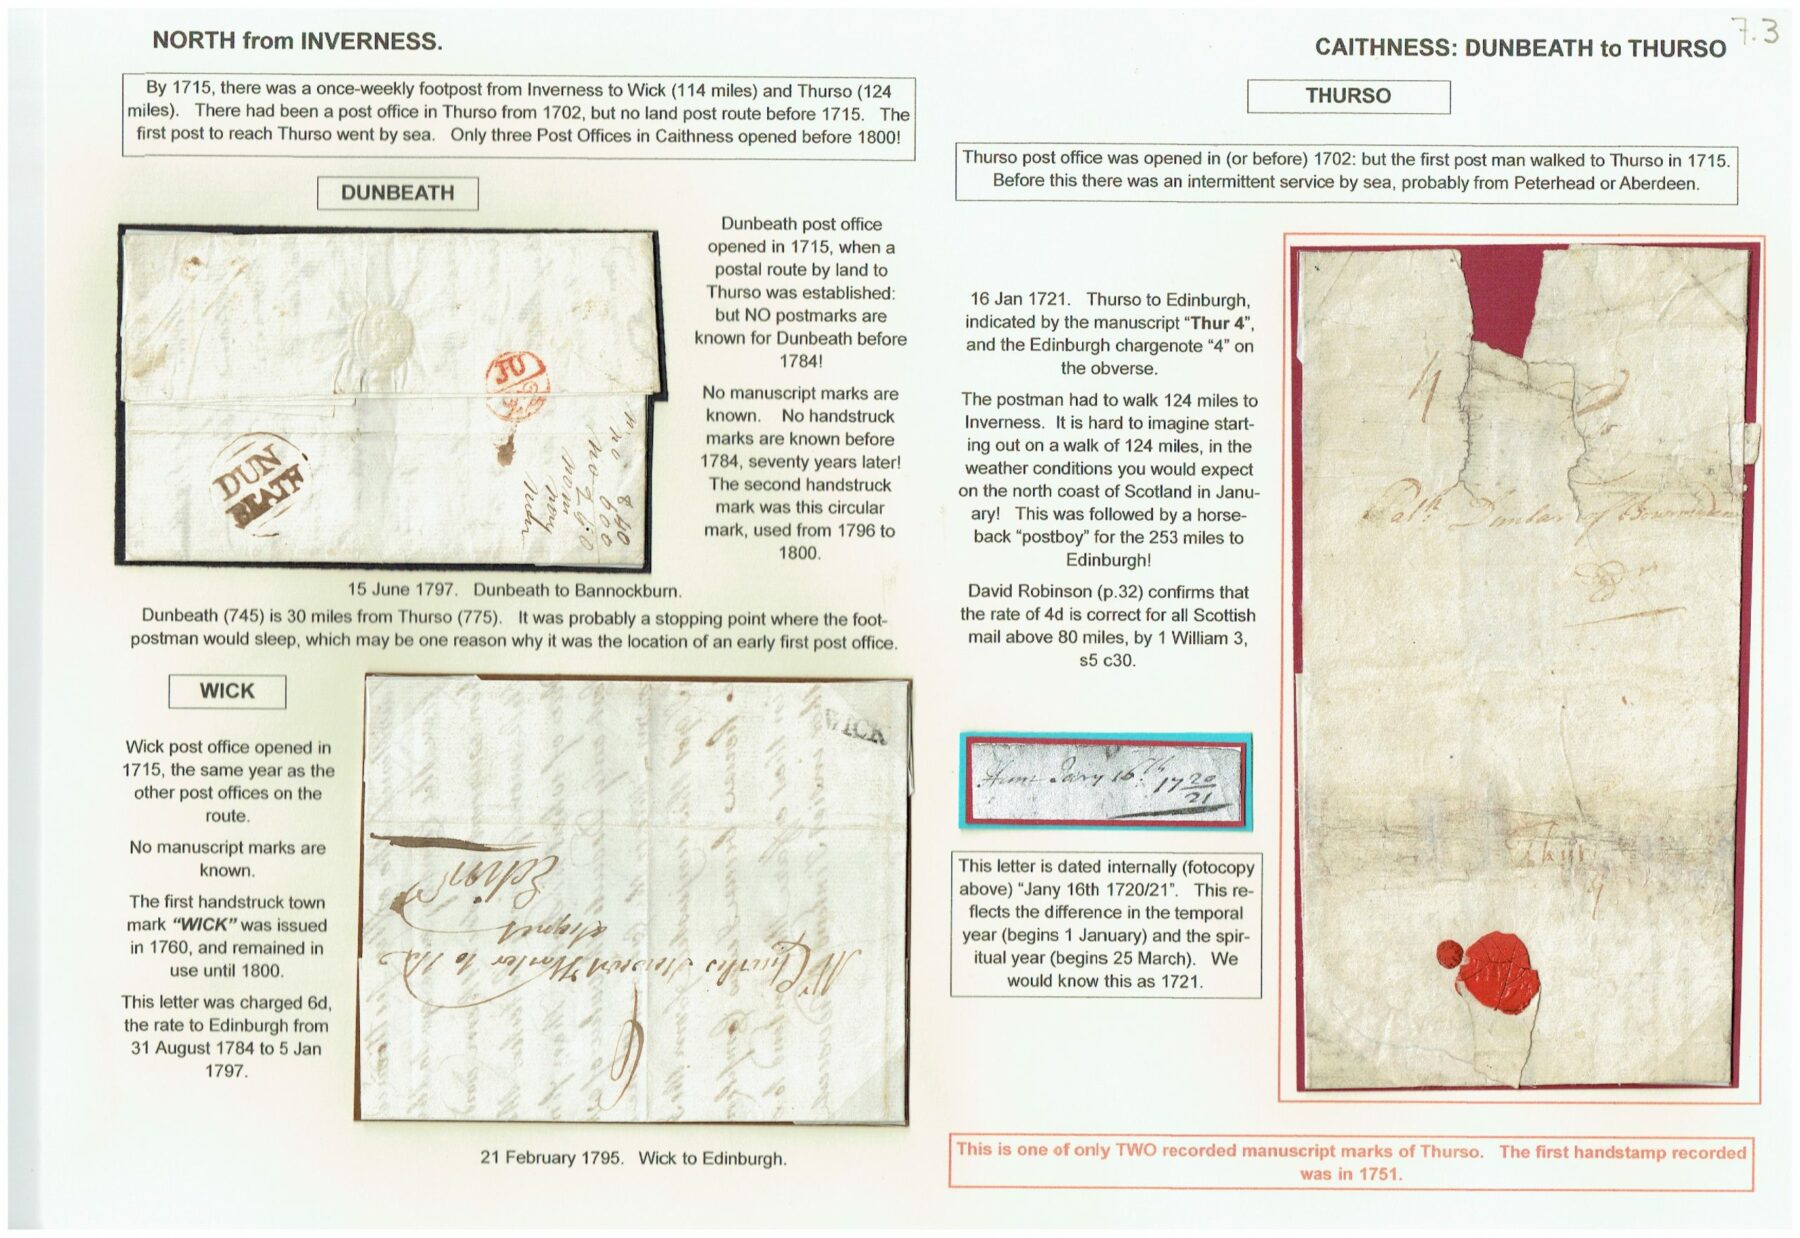 7.3
NORTH from INVERNESS.
CAITHNESS: DUNBEATH to THURSO
By 1715, there was a once-weekly footpost from Inverness to Wick (114 miles) and Thurso (124
miles). There had been a post office in Thurso from 1702, but no land post route before 1715. The
first post to reach Thurso went by sea. Only three Post Offices in Caithness opened before 1800!
DUNBEATH
JU
DUN
BEATH
Dunbeath post office
opened in 1715, when a
postal route by land to
Thurso was established:
but NO postmarks are
known for Dunbeath before
1784!
No manuscript marks are
known. No handstruck
marks are known before
1784, seventy years later!
The second handstruck
mark was this circular
mark, used from 1796 to
1800.
15 June 1797. Dunbeath to Bannockburn.
Dunbeath (745) is 30 miles from Thurso (775). It was probably a stopping point where the foot-
postman would sleep, which may be one reason why it was the location of an early first post office.
WICK
Wick post office opened in
1715, the same year as the
other post offices on the
route.
No manuscript marks are
known.
The first handstruck town
mark "WICK" was issued
in 1760, and remained in
use until 1800.
This letter was charged 6d,
the rate to Edinburgh from
31 August 1784 to 5 Jan
1797.
WICK
Mr Charles Stewart Writer to the
Signet
Edinr
6
21 February 1795. Wick to Edinburgh.
THURSO
Thurso post office was opened in (or before) 1702: but the first post man walked to Thurso in 1715.
Before this there was an intermittent service by sea, probably from Peterhead or Aberdeen.
16 Jan 1721. Thurso to Edinburgh,
indicated by the manuscript "Thur 4",
and the Edinburgh chargenote "4" on
the obverse.
The postman had to walk 124 miles to
Inverness. It is hard to imagine start-
ing out on a walk of 124 miles, in the
weather conditions you would expect
on the north coast of Scotland in Janu-
ary! This was followed by a horse-
back "postboy" for the 253 miles to
Edinburgh!
David Robinson (p.32) confirms that
the rate of 4d is correct for all Scottish
mail above 80 miles, by 1 William 3,
s5 c30.
Jany 16th 1720/21
This letter is dated internally (fotocopy
above) "Jany 16th 1720/21". This re-
flects the difference in the temporal
year (begins 1 January) and the spir-
itual year (begins 25 March). We
would know this as 1721.
4
To
Dunbar of
Thur
4
This is one of only TWO recorded manuscript marks of Thurso. The first handstamp recorded
was in 1751.